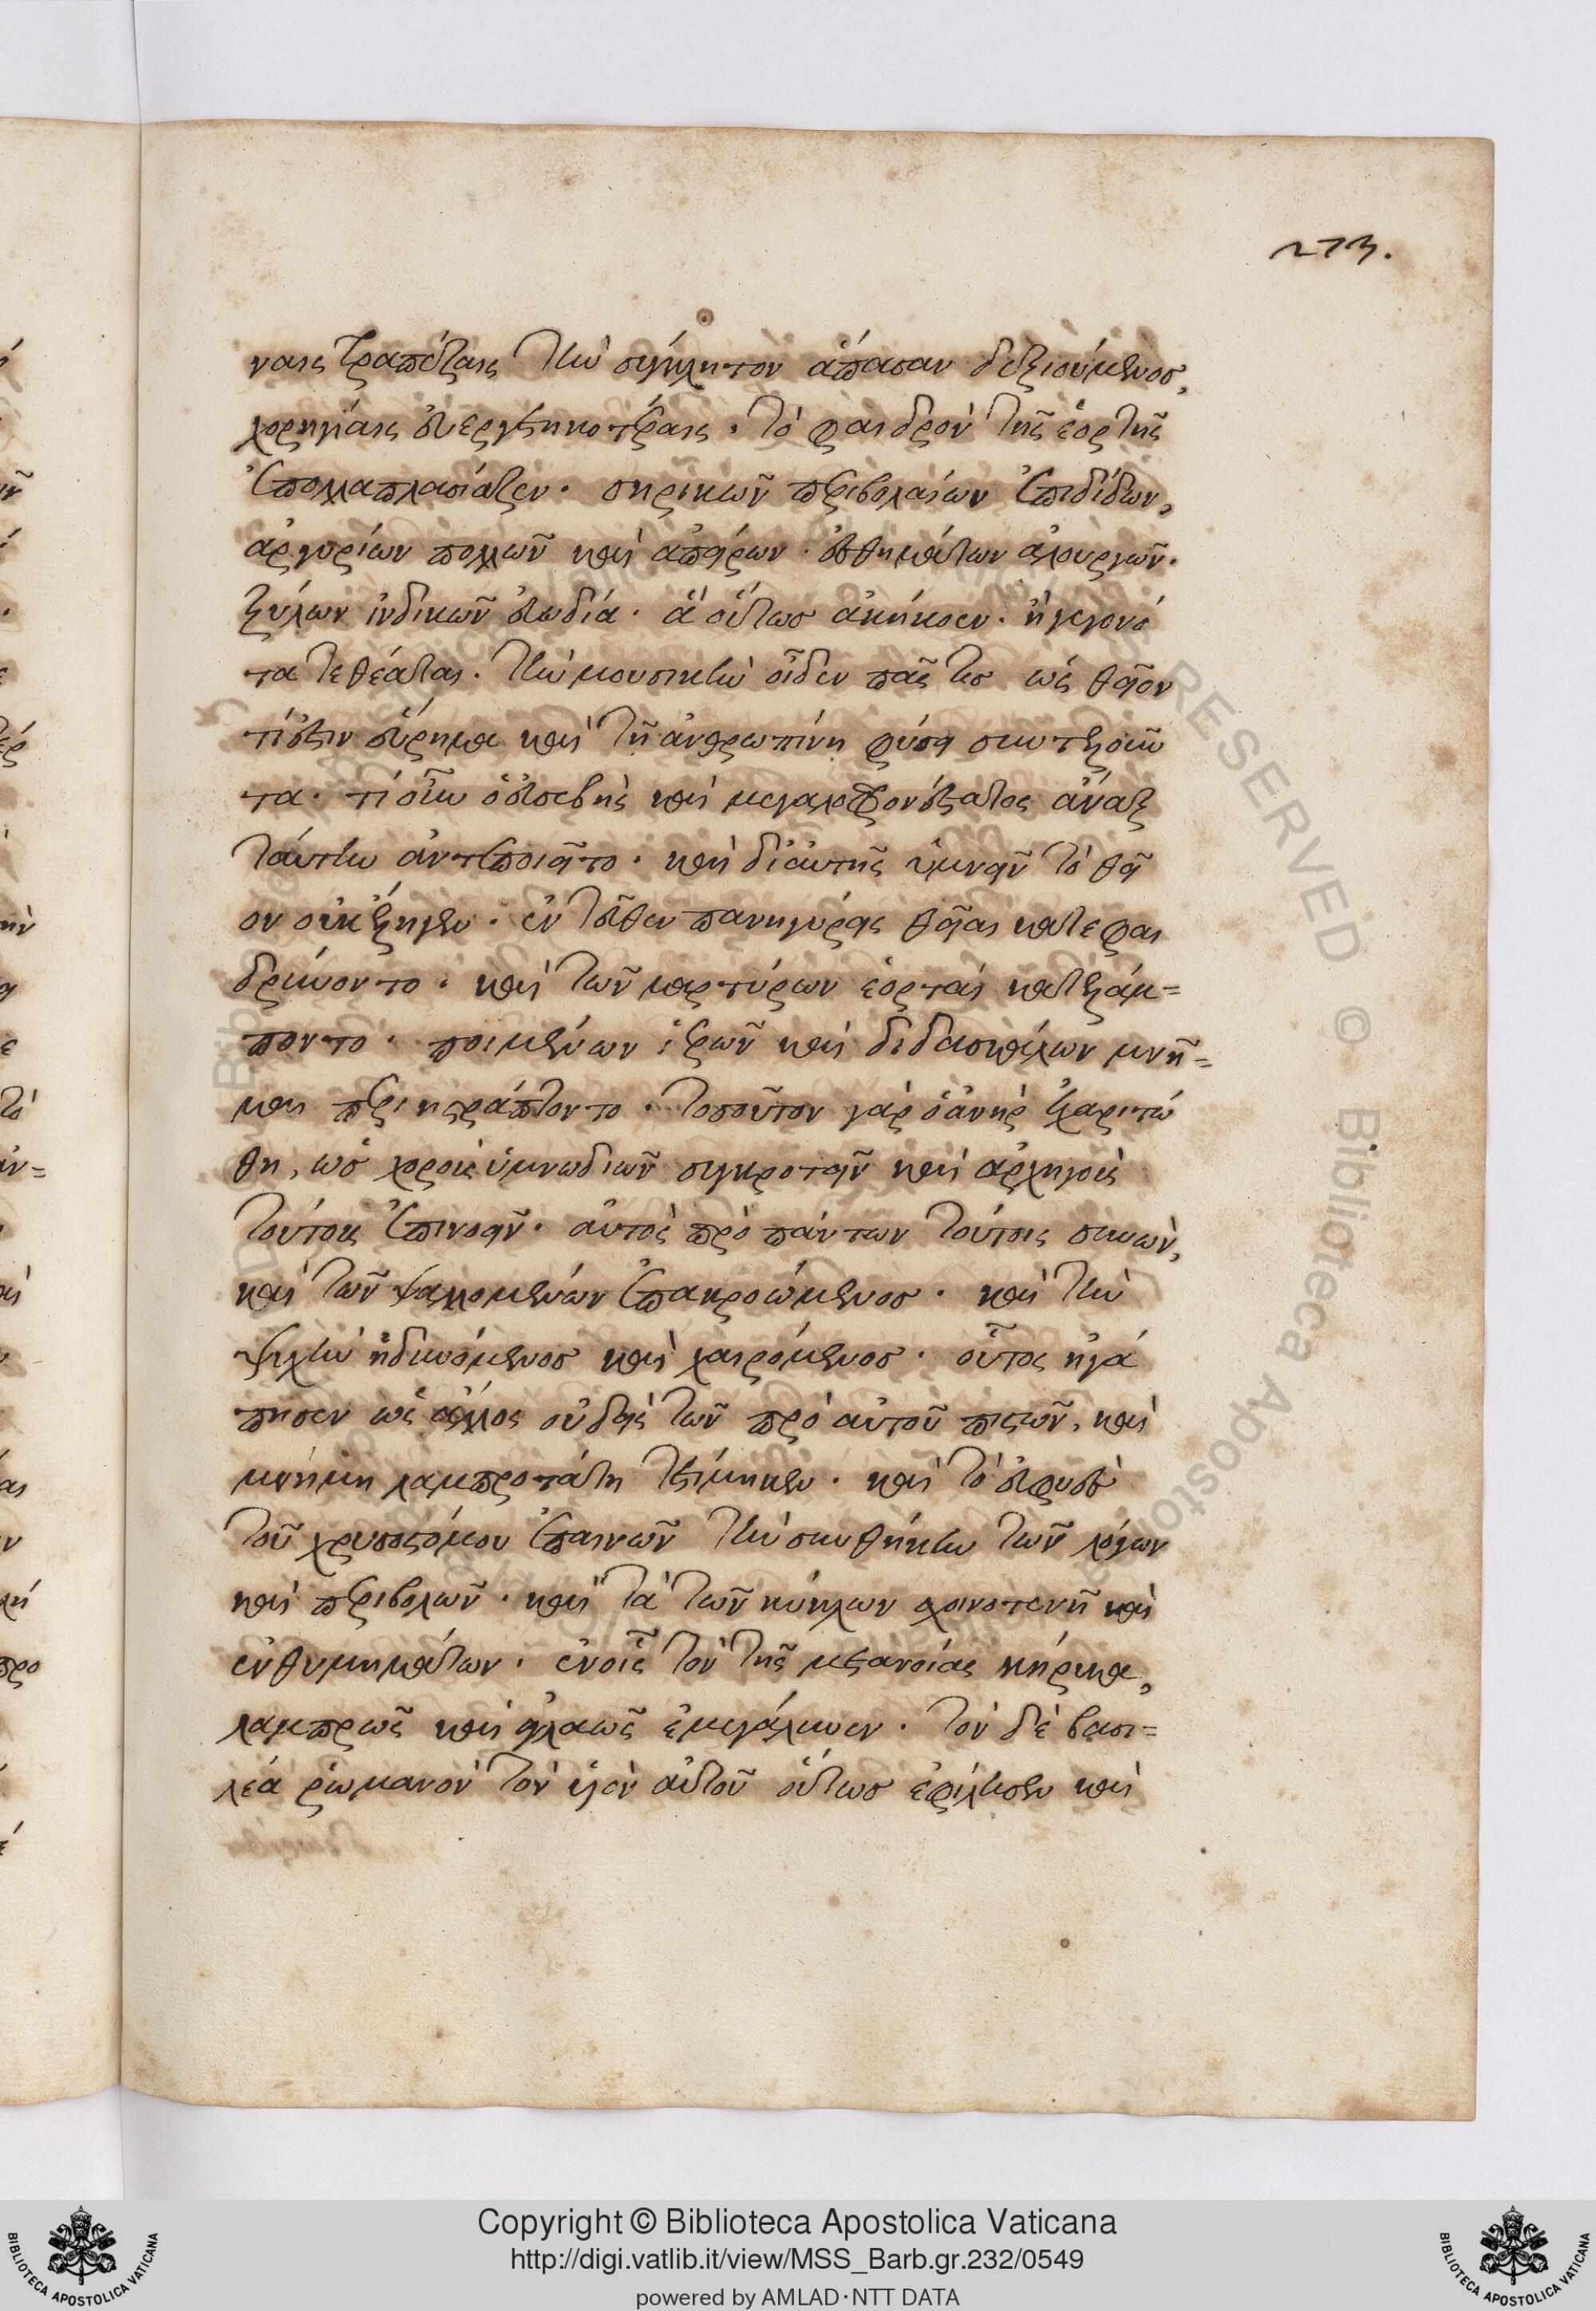 273.
ναις τραπέζαις τὴν σύγκλητον ἅπασαν δεξιούμενος,
χορηγίαις εὐεργετικωτέραις. τὸ φαιδρὸν τῆς ἑορτῆς
ἐπολλαπλασίαζεν. σηρικῶν περιβολαίων ἐπιδίδων,
ἀργυρίων πολλῶν καὶ ἀπείρων. ἐσθημάτων ἁλουργῶν.
ξύλων ἰνδικῶν εὐωδία. ἃ οὔτως ἀκήκοεν. ἢ γεγονό
τα τεθέαται. τὴν μουσικὴν οἶδεν πᾶς τις ὡς θεῖον
τί ἐστιν εὕρημα καὶ τῇ ἀνθρωπίνῃ φύσει συντελοῦν
τα. τί οὖν ὁ εὐσεβὴς καὶ μεγαλοφρονέστατος ἄναξ
ταύτην ἀντεποιεῖτο. καὶ δι' αὐτῆς ὑμνεῖν τὸ θεῖ
ον οὐκ ἔληγεν. ἐντεῦθεν πανηγύρεις θεῖαι κατεφαι
δρύνοντο. καὶ τῶν μαρτύρων ἑορταὶ κατελάμ=
ποντο. ποιμένων ἱερῶν καὶ διδασκάλων μνῆ=
μαι περιηστράπτοντο. τοσοῦτον γὰρ ὁ ἀνὴρ ἐχαριτώ
θη, ὡς χοροὺς ὑμνωδιῶν συγκροτεῖν καὶ ἀρχηγοὺς
τούτοις ἐπινοεῖν. αὐτὸς πρὸ πάντων τούτοις συνὼν,
καὶ τῶν ψαλλομένων ἐπακροώμενος. καὶ τὴν
ψυχὴν ἡδυνόμενος καὶ χαιρόμενος. οὗτος ἠγά
πησεν ὡς ἄλλος οὐδεὶς τῶν πρὸ αὐτοῦ πιστῶν, καὶ
μνήμῃ λαμπροτάτῃ τετίμηκεν. καὶ τὸ εὐφυὲς
τοῦ χρυσοστόμου ἐπαινῶν τὴν συνθήκην τῶν λόγων
καὶ περιβολῶν. καὶ τὰ τῶν κύκλων σχοινοτενῆ καὶ
ἐνθυμημάτων. ἐν οἷς τὸν τῆς μετανοίας κήρυκα,
λαμπρῶς καὶ ἱλαρῶς ἐμεγάλυνεν. τὸν δὲ βασι=
λέα ῥωμανὸν τὸν υἱὸν αὐτοῦ οὕτως ἐφίλησεν καὶ
Copyright © Biblioteca Apostolica Vaticana
http://digi.vatlib.it/view/MSS_Barb.gr.232/0549
powered by AMLAD·NTT DATA